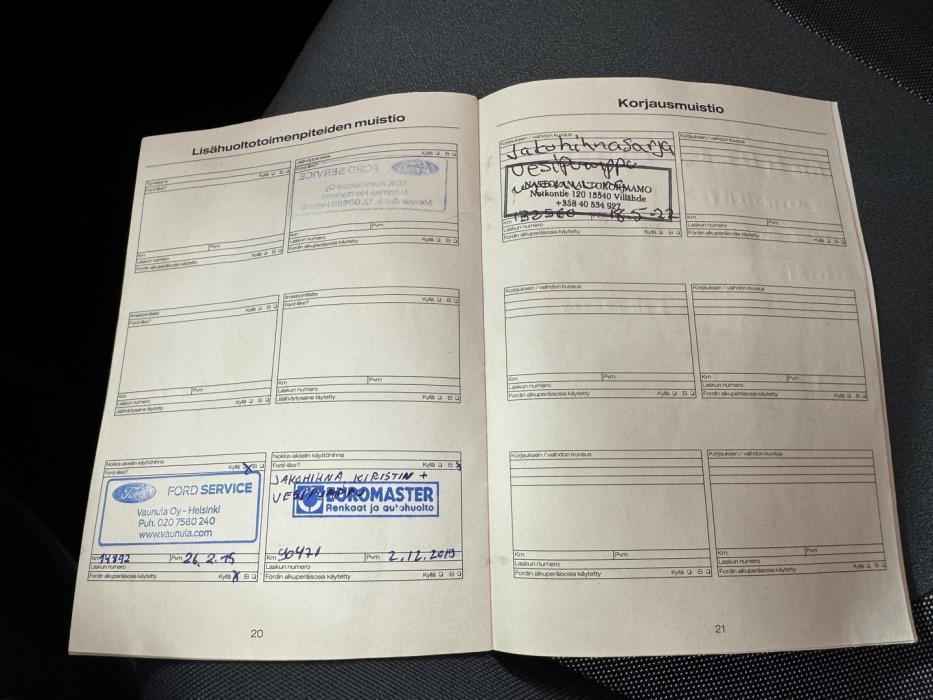 Lisähuoltotoimenpiteiden muistio
Turvatyynyt
Ford-liike? Kyllä Ei
Km Pvm
Laskun numero
Fordin alkuperäisosia käytetty Kyllä Ei
Jäähdytysneste
Ford-liike? Kyllä Ei
FORD SERVICE
Km Pvm
Laskun numero
Fordin alkuperäisosia käytetty Kyllä Ei
Ilmastointilaite
Ford-liike? Kyllä Ei
Km Pvm
Laskun numero
Jäähdytysaine täytetty Kyllä Ei
Ilmastointilaite
Ford-liike? Kyllä Ei
Km Pvm
Laskun numero
Jäähdytysaine täytetty Kyllä Ei
Nokka-akselin käyttöhihna
Ford-liike? Kyllä Ei
Ford FORD SERVICE
Vaunula Oy - Helsinki
Puh. 020 7580 240
www.vaunula.com
Km Pvm 26.2.15
Laskun numero
Fordin alkuperäisosia käytetty Kyllä Ei
Nokka-akselin käyttöhihna
Ford-liike? Kyllä Ei
JAKOHIHNA, KIRISTIN +
VESIPUMPPU
EUROMASTER
Renkaat ja autohuolto
Km 90471 Pvm 2.12.2019
Laskun numero
Fordin alkuperäisosia käytetty Kyllä Ei
20
Korjausmuistio
Korjauksen / vaihdon kuvaus
Jakohihnasarja
Vesipumppu
Neitkontie 120 15540 Villähde
Km 132560 Pvm
Laskun numero
Fordin alkuperäisosia käytetty Kyllä Ei
Korjauksen / vaihdon kuvaus
Km Pvm
Laskun numero
Fordin alkuperäisosia käytetty Kyllä Ei
Korjauksen / vaihdon kuvaus
Km Pvm
Laskun numero
Fordin alkuperäisosia käytetty Kyllä Ei
Korjauksen / vaihdon kuvaus
Km Pvm
Laskun numero
Fordin alkuperäisosia käytetty Kyllä Ei
Korjauksen / vaihdon kuvaus
Km Pvm
Laskun numero
Fordin alkuperäisosia käytetty Kyllä Ei
Korjauksen / vaihdon kuvaus
Km Pvm
Laskun numero
Fordin alkuperäisosia käytetty Kyllä Ei
21